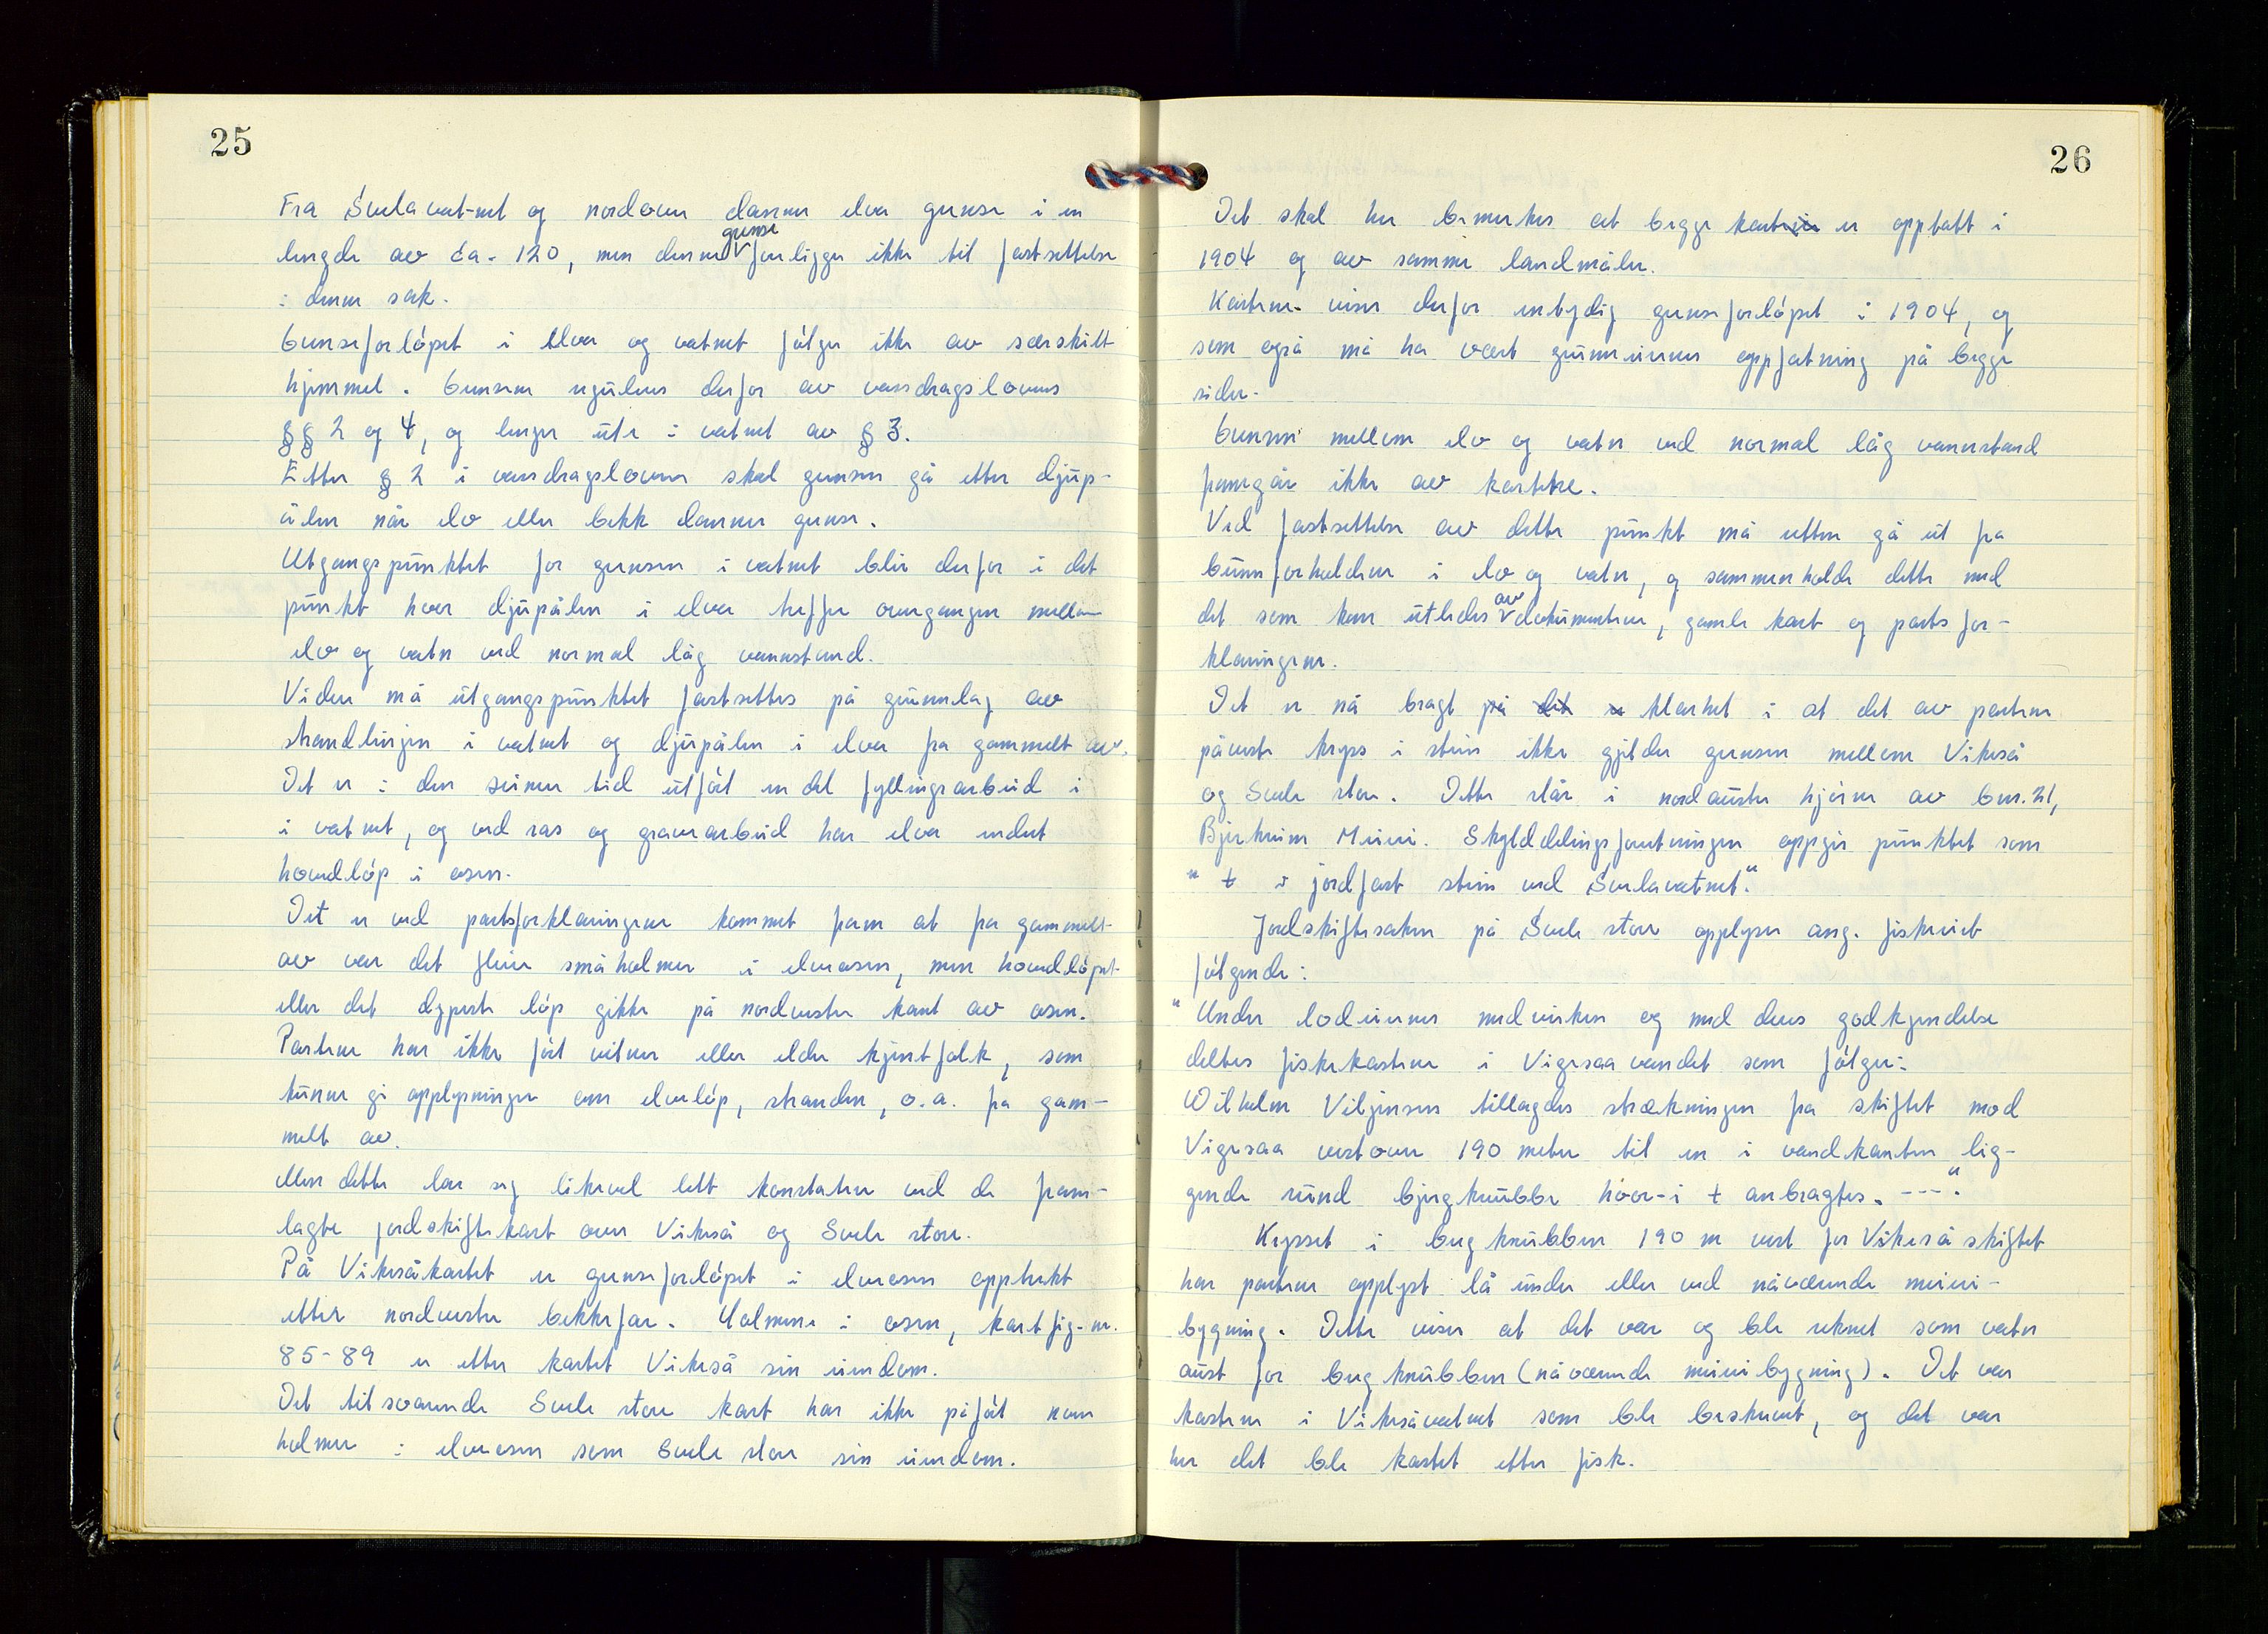 25
Fra Svelavatnet og nordover danner elva grense i en
lengde av ca. 120, men denne grense foreligger ikke til fastsettelse
i denne sak.
Grenseforløpet i elva og vatnet følger ikke av særskilt
hjemmel. Grensen reguleres derfor av vassdragslovens
§§ 2 og 4, og lenger ute i vatnet av § 3.
Etter § 2 i vassdragsloven skal grensen gå etter djup-
ålen når elv eller bekk danner grense.
Utgangspunktet for grensen i vatnet blir derfor i det
punkt hvor djupålen i elva treffer overgangen mellom
elv og vatn ved normal låg vannstand.
Videre må utgangspunktet fastsettes på grunnlag av
strandlinjen i vatnet og djupålen i elva fra gammelt av.
Det er i den seinere tid utført en del fyllingsarbeid i
i vatnet, og ved ras og gravearbeid har elva endret
hovedløp i osen.
Det er ved partsforklaringene kommet fram at fra gammelt
av var det flere småholmer i elveosen, men hovedløpet
eller det dypeste løp gikk på nordvestre kant av osen.
Partene har ikke ført vitner eller eldre kjentfolk, som
kunne gi opplysninger om elveløp, stranden, o.a. fra gam-
melt av.
Men dette lar seg likevel lett konstatere ved de fram-
lagte jordskiftekart over Vikeså og Svele store.
På Vikesåkartet er grenseforløpet i elveosen opptrekt
etter nordvestre bekkefar. Holmene i osen, kartfig. nr.
85-89 er etter kartet Vikeså sin eiendom.
Det tilsvarende Svele store kart har ikke påført noen
holmer i elveosen som Svele store sin eiendom.
26
Det skal her bemerkes at begge kartene er opptatt i
1904 og av samme landmåler.
Kartene viser derfor entydig grenseforløpet i 1904, og
som også må ha vært grunneiernes oppfatning på begge
sider.
Grensen mellom elv og vatn ved normal låg vannstand
framgår ikke av kartene.
Ved fastsettelse av dette punkt må retten gå ut fra
bunnforholdene i elv og vatn, og sammenholde dette med
det som kan utledes av dokumentene, gamle kart og parts for-
klaringene.
Det er nå bragt på det er klarhet i at det av partene
påviste kryss i stein ikke gjelder grensen mellom Vikeså
og Svele store. Dette står i nordaustre hjørne av bnr. 21,
Bjerkreim Meieri. Skylddelingsforretningen oppgir punktet som
" + i jordfast stein ved Svelavatnet".
Jordskiftesaken på Svele store opplyser ang. fiskeriet
følgende:
" Under lodeiernes medvirken og med deres godkjendelse
deltes fiskekastene i Vigesaavandet som følger:
Wilhelm Viljensen tillagdes strækningen fra skiftet mod
Vigesaa vestover 190 meter til en i vandkanten lig-
gende rund bjergknubbe hvor-i + anbragtes. ---"
Krysset i bergknubben 190 m vest for Vikesåskiftet
har partene opplyst lå under eller ved nåværende meieri-
bygning. Dette viser at det var og ble reknet som vatn
aust for bergknubben (nåværende meieribygning). Det var
kastene i Vikesåvatnet som ble beskrevet, og det var
her det ble kastet etter fisk.